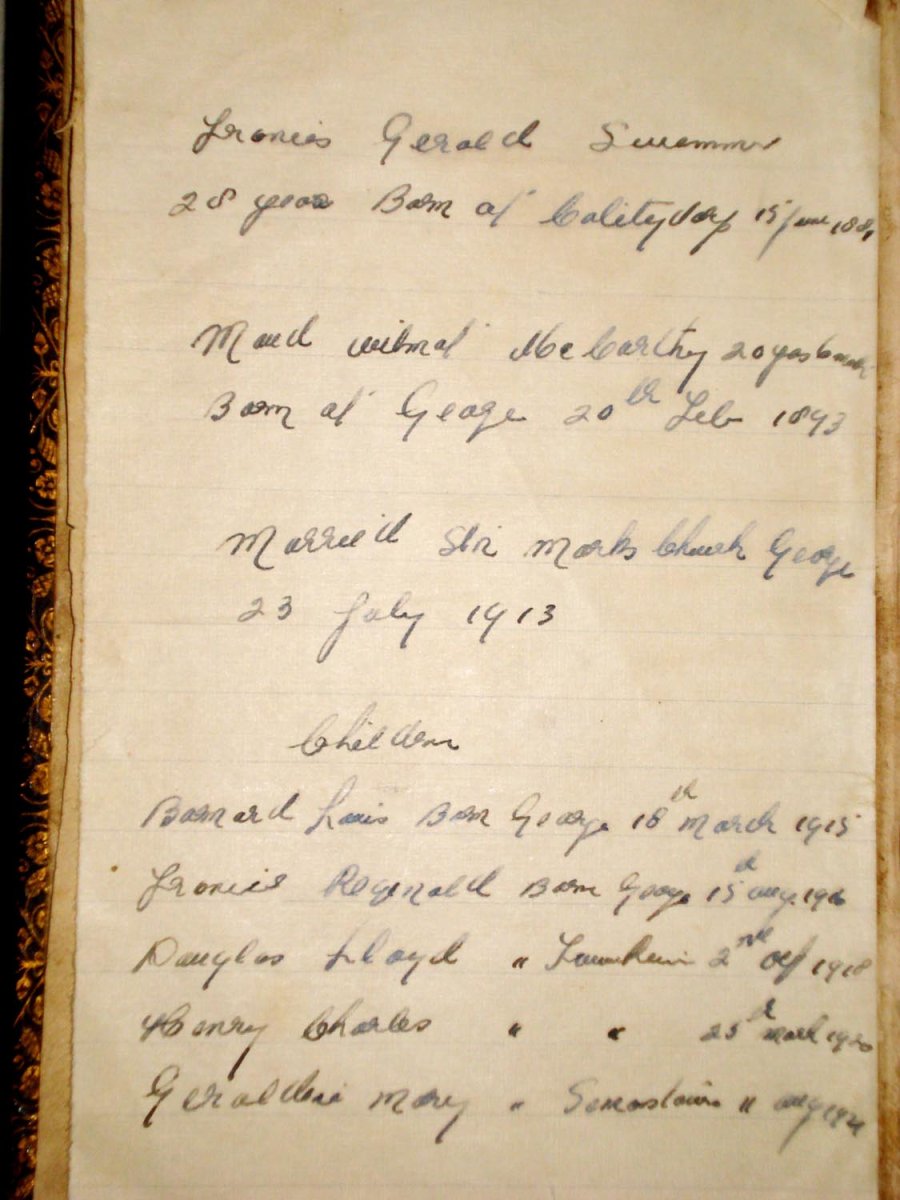 Francis Gerald Swemmer
28 years Born at Calitzdorp 15 June
Maud Wilmot McCarthy 20 yrs 6 month
Born at George 20th Feb 1893
Married St Marks Church George
23 July 1913
Children
Barnard Louis Born George 18th March 1915
Francis Reginald Born George 15th Aug. 1916
Douglas Lloyd " 2nd Oct 1918
Henry Charles " " 25th March 1920
Geraldine Mary " " Aug 1921